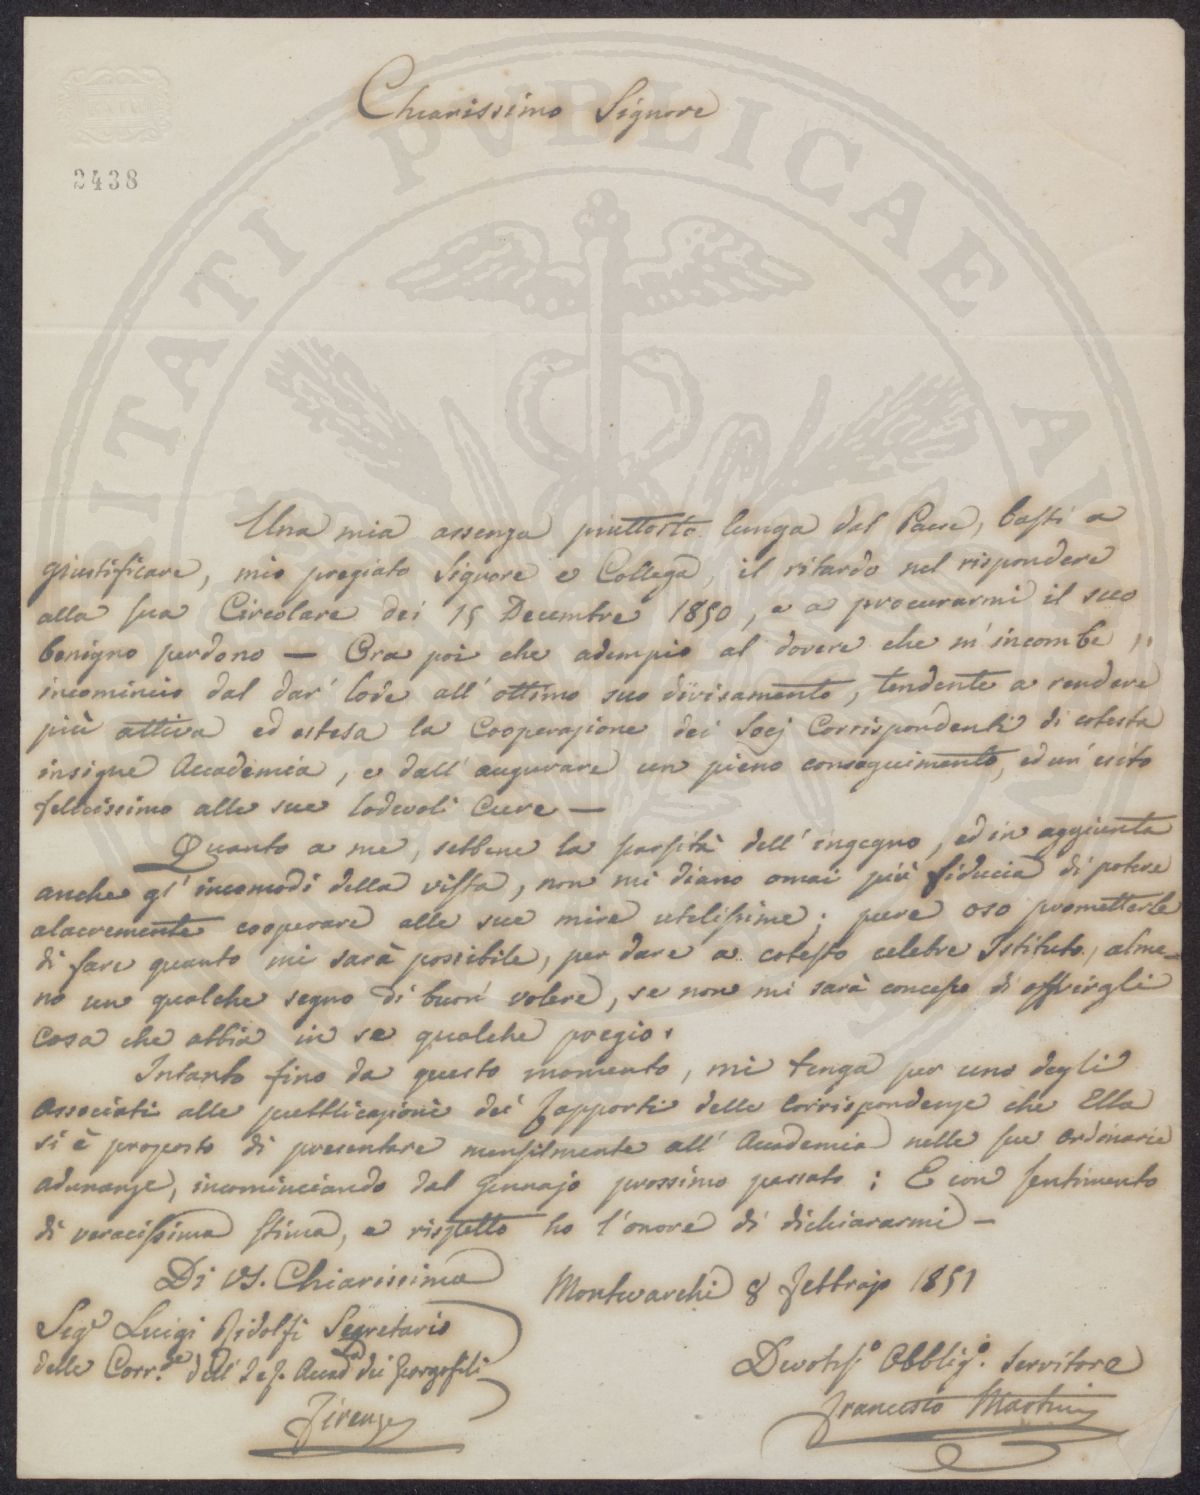 Chiarissimo Signore
PROSPERITATI PVBLICAE AV
2438
Una mia assenza piuttosto lunga dal Paese, basti a
giustificare, mio pregiato Signore e Collega, il ritardo nel rispondere
alla sua Circolare dei 15 Decembre 1850, e a procurarmi il suo
benigno perdono — Ora poi che adempio al dovere che m'incombe,
incomincio dal dar' lode all'ottimo suo divisamento, tendente a rendere
più attiva ed estesa la Cooperazione dei Socj Corrispondenti di cotesta
insigne Accademia, e dall'augurare un pieno conseguimento, ed un'esito
felicissimo alle sue lodevoli Cure —
Quanto a me, sebbene la scarsità dell'ingegno, ed in aggiunta
anche gl'incomodi della vista, non mi diano omai più fiducia di potere
alacremente cooperare alle sue mire utilissime; pure oso prometterle
di fare quanto mi sarà possibile, per dare a cotesto celebre Istituto, alme-
no un qualche segno di buon' volere, se non mi sarà concesso di offrirgli
Cosa che abbia in se qualche pregio.
Intanto fino da questo momento, mi tenga per uno degli
Associati alle pubblicazioni dei rapporti delle Corrispondenze che Ella
si è proposto di presentare mensilmente all'Accademia nelle sue ordinarie
adunanze, incominciando dal Gennajo prossimo passato: E con sentimento
di veracissima stima, e rispetto ho l'onore di dichiararmi —
Di VS. Chiarissima
Montevarchi 8 Febbrajo 1851
Sigr Luigi Ridolfi Segretario
delle Corr.ze dell'I e R. Accad.a dei Georgofili
Firenze
Devotiss.o Obblig.o Servitore
Francesco Martini